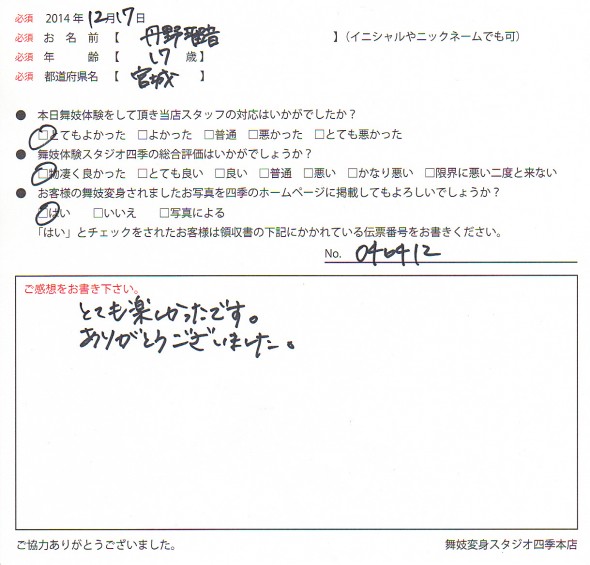 必須 2014年12月17日
必須 お名前【 丹野瑠音 】（イニシャルやニックネームでも可）
必須 年齢【 17 歳】
必須 都道府県名【 宮城 】
● 本日舞妓体験をして頂き当店スタッフの対応はいかがでしたか？
□とてもよかった □よかった □普通 □悪かった □とても悪かった
● 舞妓体験スタジオ四季の総合評価はいかがでしょうか？
□物凄く良かった □とても良い □良い □普通 □悪い □かなり悪い □限界に悪い二度と来ない
● お客様の舞妓変身されましたお写真を四季のホームページに掲載してもよろしいでしょうか？
□はい □いいえ □写真による
「はい」とチェックをされたお客様は領収書の下記にかかれている伝票番号をお書きください。
No. 046412
ご感想をお書き下さい。
とても楽しかったです。
ありがとうございました。
ご協力ありがとうございました。 舞妓変身スタジオ四季本店